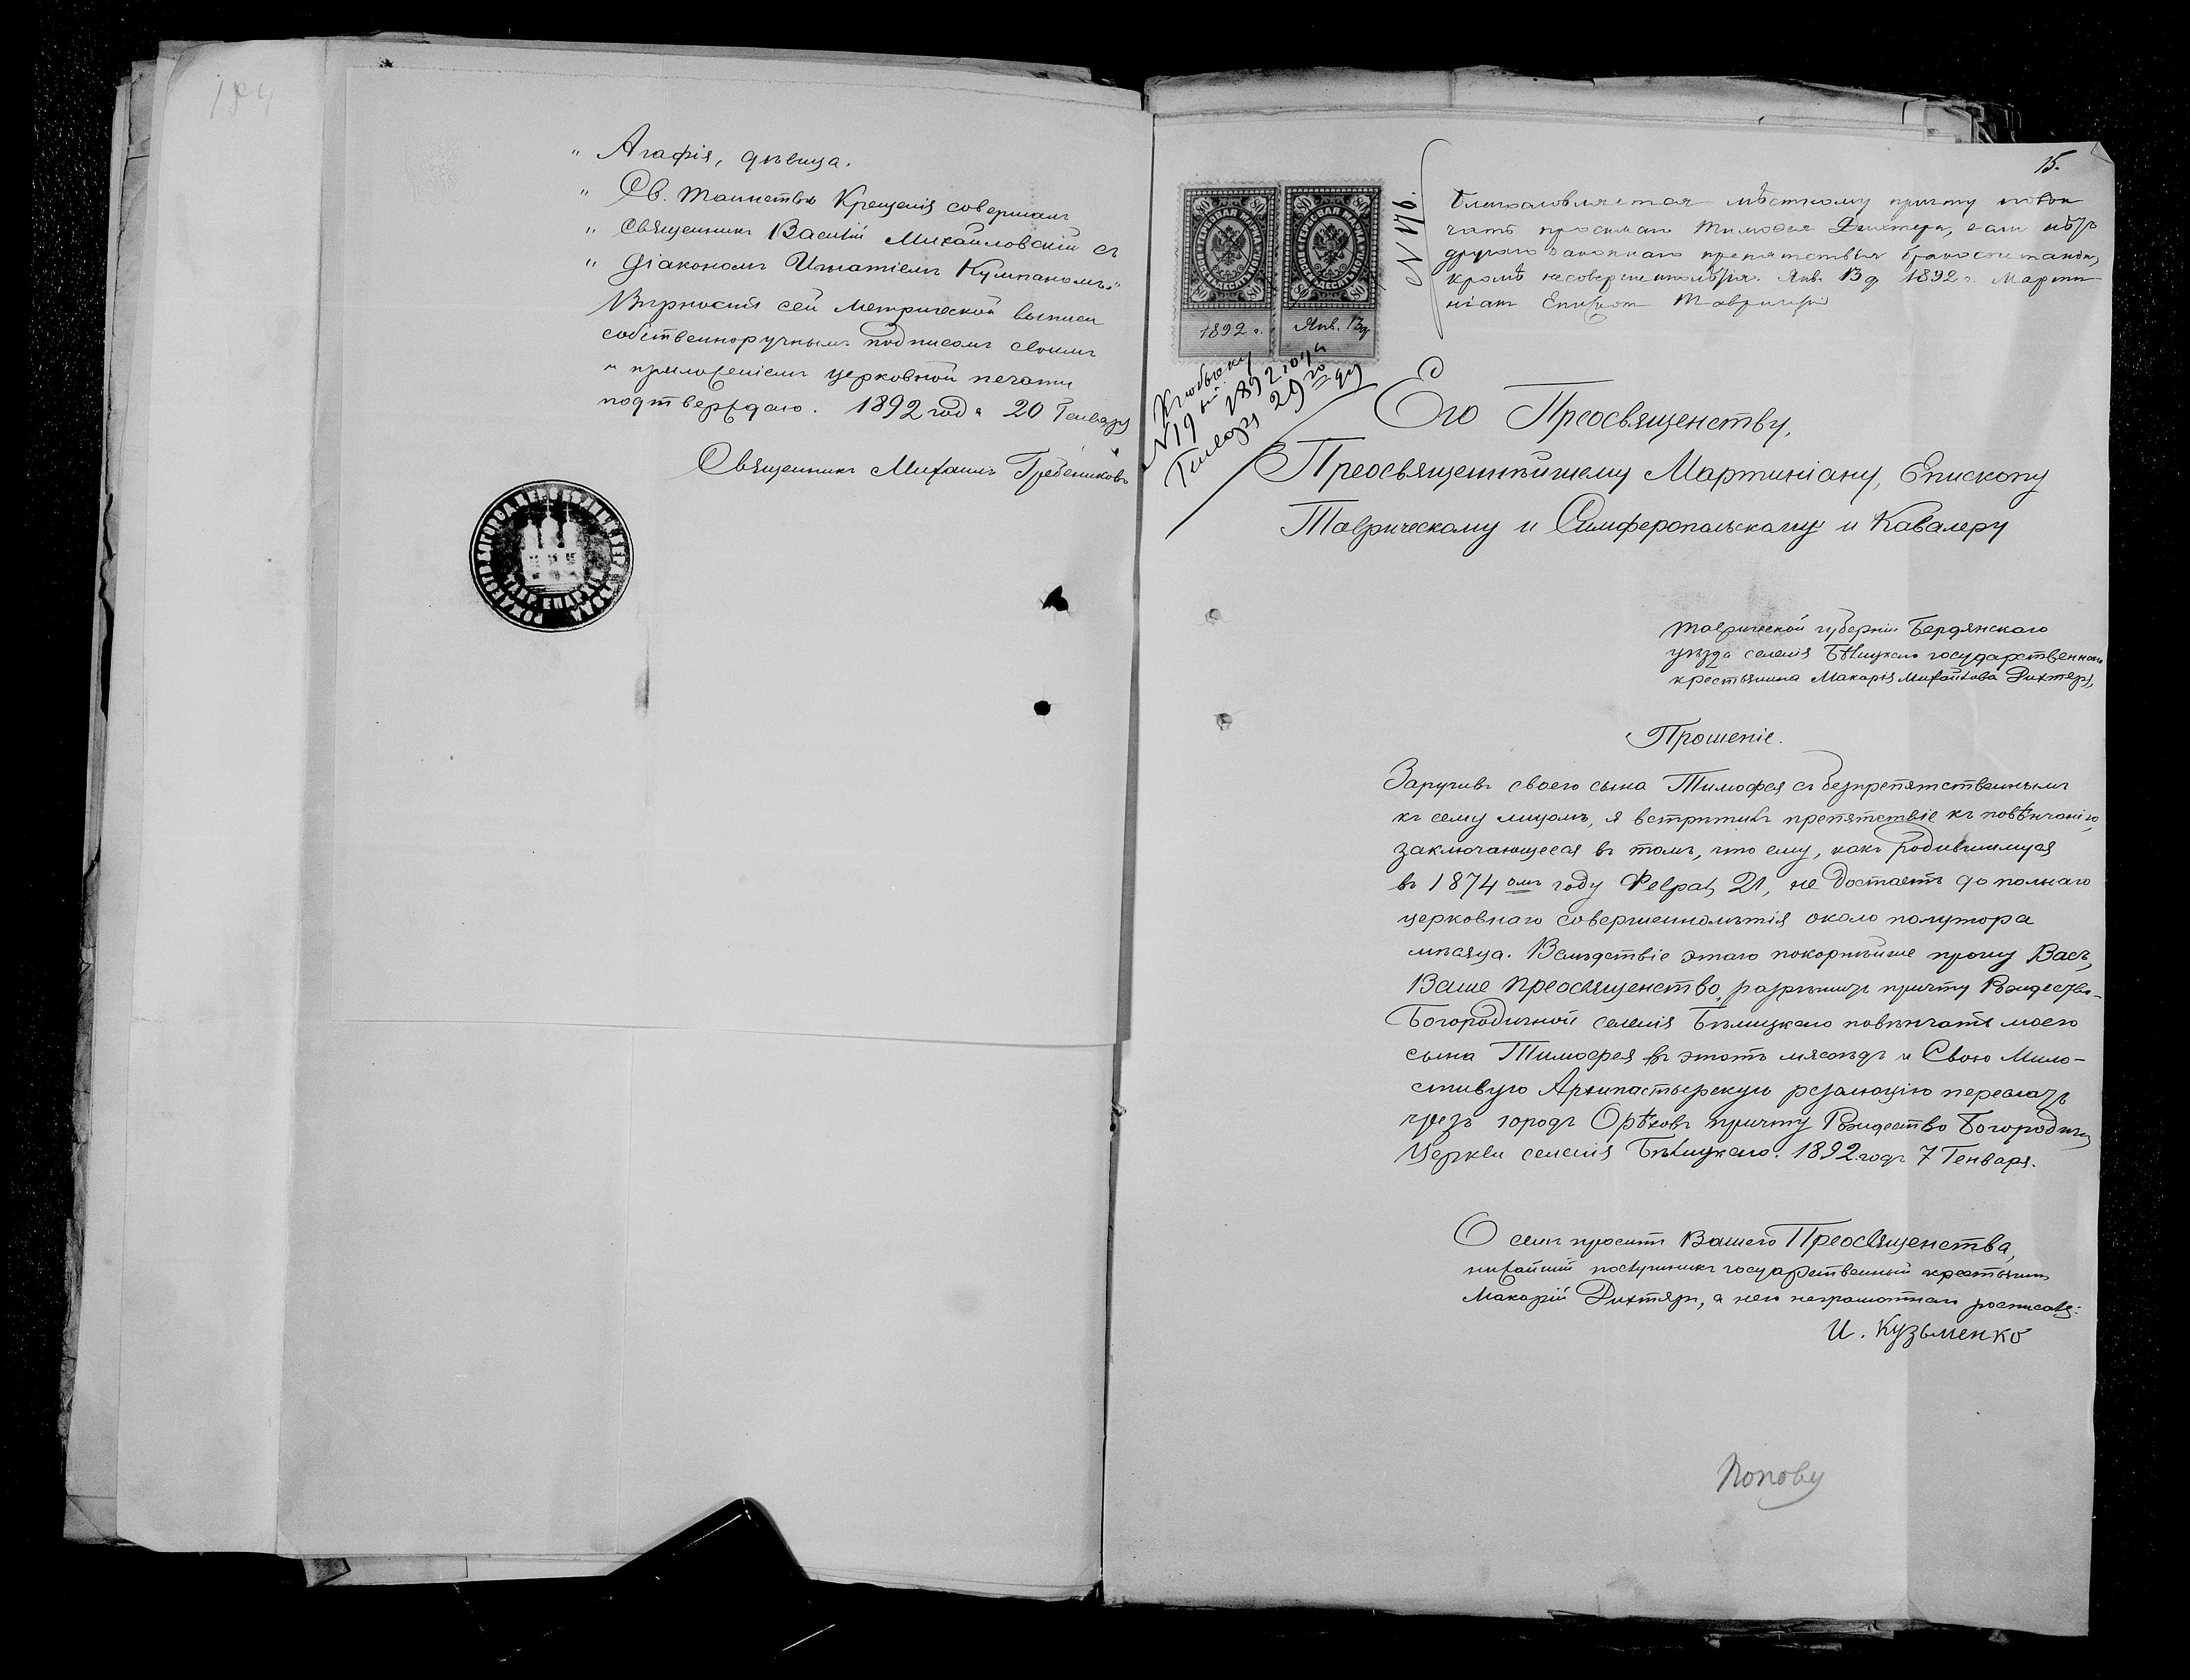 " Агафія, дѣвица.
" Св. таинство Крещенія совершалъ
" Священникъ Василій Михайловскій съ
" Діакономъ Игнатіемъ Кумпаномъ."
Вѣрность сей метрической выписи
собственноручнымъ подписомъ своимъ
и приложеніемъ церковной печати
подтверждаю. 1892 года 20 Генваря
Священникъ Михаилъ Гребениковъ
15.
80 80
80 80
1892 г. Янв. 13 д
№ 178.
Благословляется мѣстному причту повѣн
чать просимаго Тимоѳея Дихтеря, если нѣтъ
другого законнаго препятствія бракосочетанію,
кромѣ несовершеннолѣтія. Янв. 13 д 1892 г. Марти-
ніанъ Епископъ Таврическій
К
№ 19 1892 года
Генваря 29 го дня
Его Преосвященству,
Преосвященнѣйшему Мартиніану, Епископу
Таврическому и Симферопольскому и Кавалеру
Таврической губерніи Бердянскаго
уѣзда селенія Бѣлицкаго государственнаго
крестьянина Макарія Михайлова Дихтяря,
Прошеніе.
Заручивъ своего сына Тимофея съ безпрепятственнымъ
къ сему лицомъ, я встрѣтилъ препятствіе къ повѣнчанію,
заключающееся въ томъ, что ему, какъ родившемуся
въ 1874 омъ году Февраля 21, не достаетъ до полнаго
церковнаго совершеннолѣтія около полутора
мѣсяца. Вслѣдствіе этаго покорнѣйше прошу Васъ,
Ваше Преосвященство, разрѣшить причту Рождество-
Богородичной селенія Бѣлицкаго повѣнчать моего
сына Тимофея въ этотъ мясоѣдъ и Свою Мило-
стивую Архипастырскую резолюцію переслать
чрезъ городъ Орѣховъ причту Рождество Богородичн
Церкви селенія Бѣлицкаго. 1892 годъ 7 Генваря.
О семъ проситъ Вашего Преосвященства,
нижайшій послушникъ государственный крестьянинъ
Макарій Дихтярь, а него неграмотнаго росписался:
И. Кузьменко
Попову